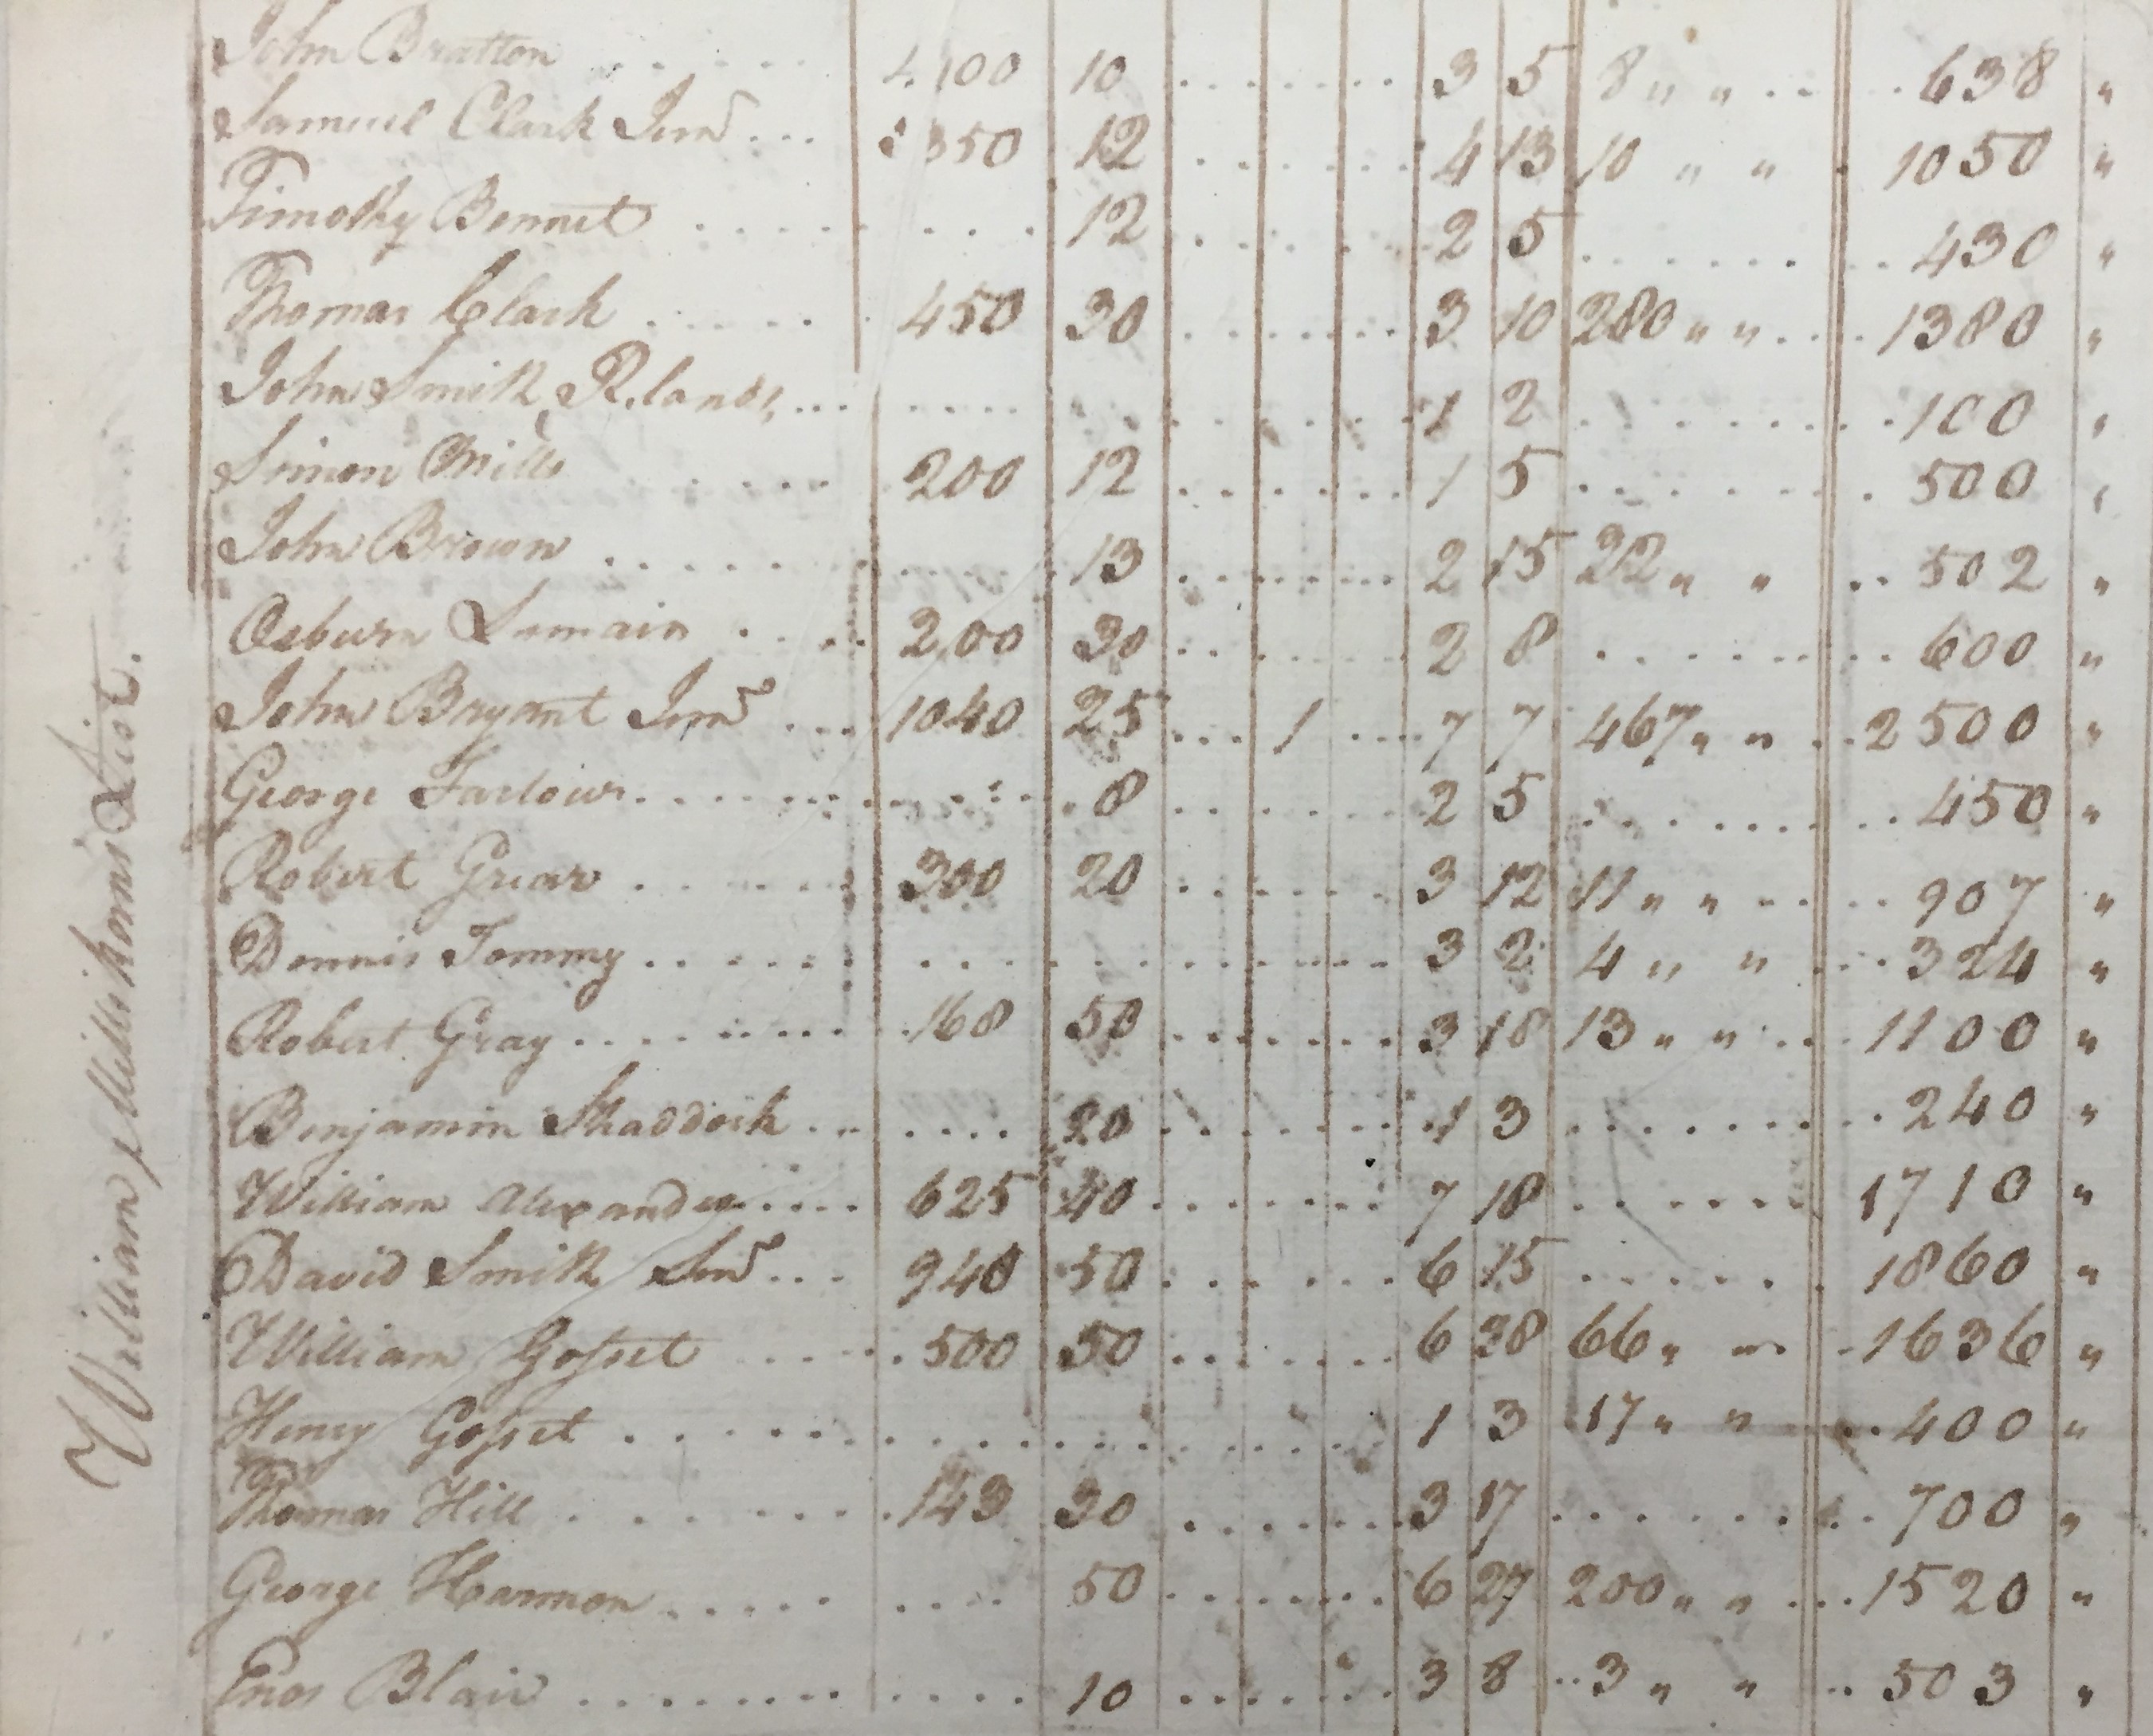 William Millikens List.
John Bratton ...... 400 10 ....... 3 5 8 " " .... 638 "
Samuel Clark Junr ... 350 12 ....... 4 13 10 " " . 1050 "
Timothy Bennet ........ 12 ....... 2 5 ......... 430 "
Thomas Clark ...... 450 30 ....... 3 10 280 " " .... 1380 "
John Smith, R.lands, ............ 1 2 ......... 100 "
Simon Mills ..... 200 12 ....... 1 5 ........ 500 "
John Brown ......... 13 ....... 2 15 212 " " .. 502 "
Osburn .... 200 30 ....... 2 8 ......... 600 "
John Bryant Junr ... 1040 25 ... 1 ... 7 7 467 " " .. 2500 "
George Farlour ......... 8 ....... 2 5 ......... 450 "
Robert Grear ...... 300 20 ....... 3 12 11 " " .... 907 "
Dennis Tommy ............ 3 2 4 " " .... 324 "
Robert Gray ......... 168 50 ....... 3 18 13 " " .... 1100 "
Benjamin Shaddock ...... 20 ....... 1 3 ......... 240 "
William Alexander .... 625 40 ....... 7 18 ...... 1710 "
David Smith Snr ... 940 50 ...... 6 15 ...... 1860 "
William Gosset ...... 500 50 ....... 6 28 66 " " . 1636 "
Henry Gosset ............ 1 3 17 " " .... 400 "
Thomas Hill ........ 143 30 ....... 3 17 ......... 700 "
George Harmon ......... 50 ....... 6 27 200 " " ... 1520 "
Enos Blair ........... 10 ....... 3 8 .. 3 " " .. 503 "